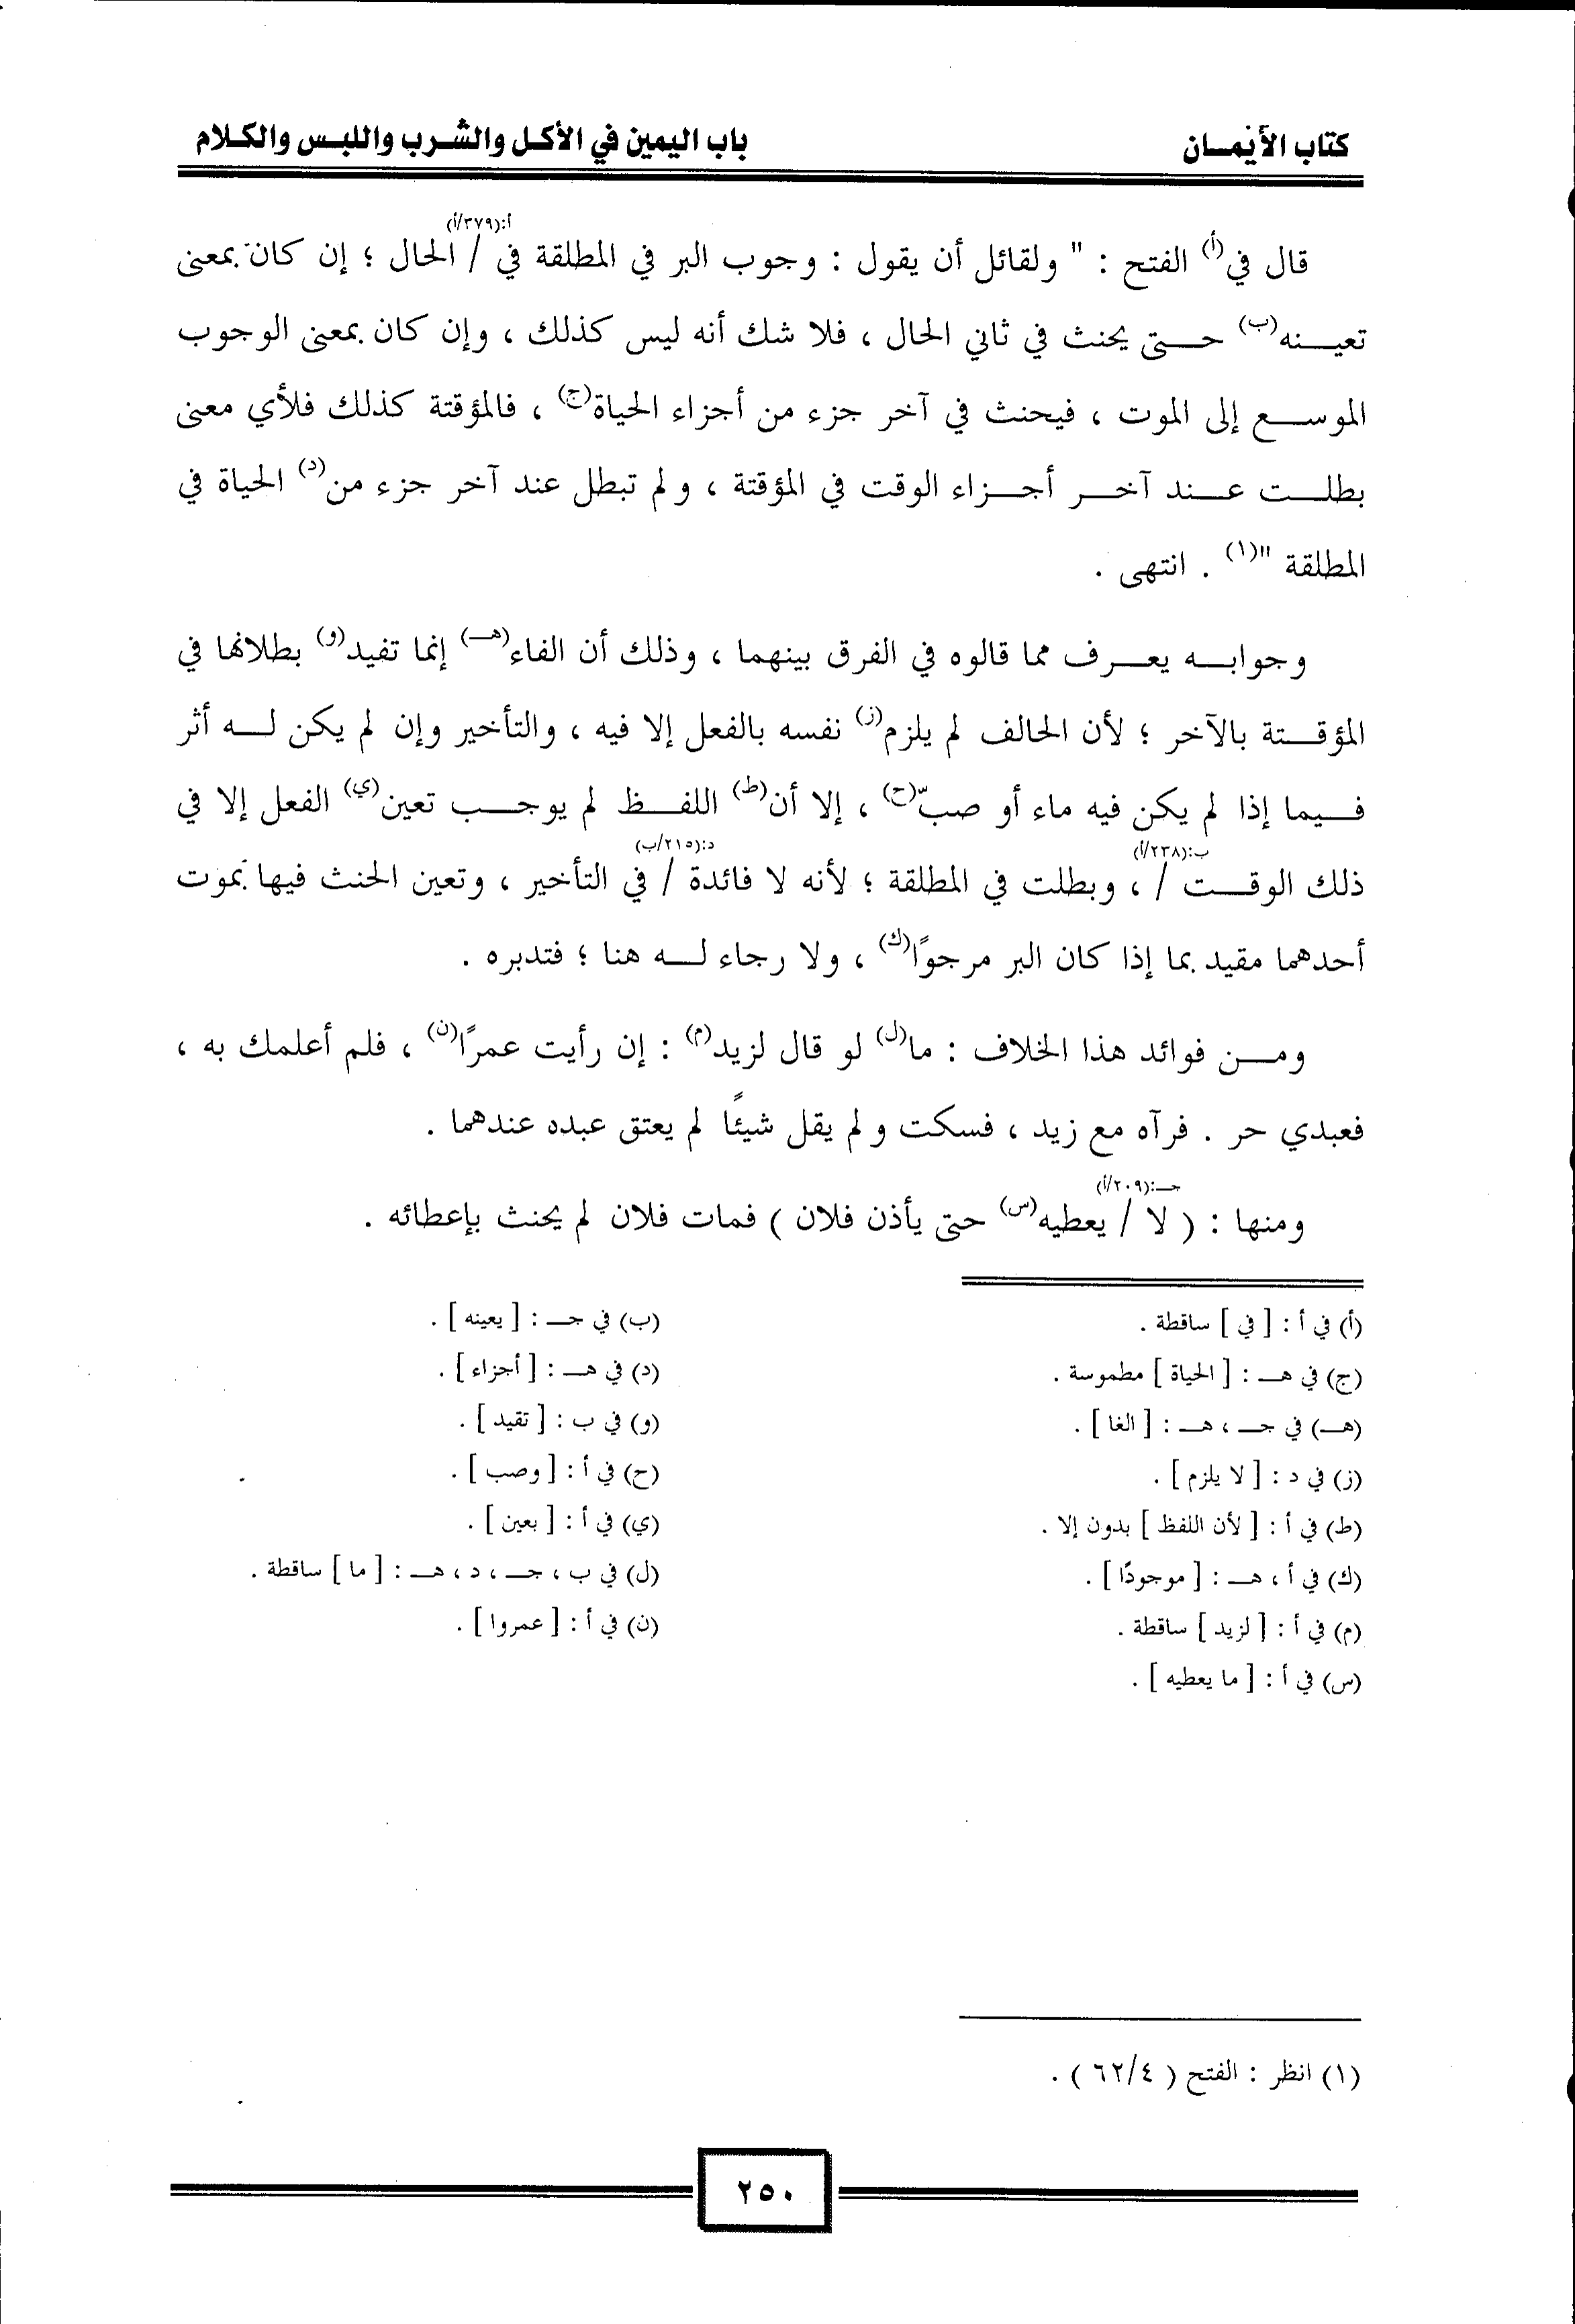 كتاب الأيْمـان
باب اليمين في الأكل والشرب واللبس والكلام
أ:(٣٧٩/أ)
قال في(أ) الفتح : " ولقائل أن يقول : وجوب البر في المطلقة في / الحال ؛ إن كان بمعنى
تعيـنه(ب) حـتى يحنث في ثاني الحال ، فلا شك أنه ليس كذلك ، وإن كان بمعنى الوجوب
الموسـع إلى الموت ، فيحنث في آخر جزء من أجزاء الحياة(ج) ، فالمؤقتة كذلك فلأي معنى
بطلـت عـند آخـر أجـزاء الوقت في المؤقتة ، ولم تبطل عند آخر جزء من(د) الحياة في
المطلقة "(١) . انتهى .
وجوابـه يعـرف مما قالوه في الفرق بينهما ، وذلك أن الفاء(هـ) إنما تفيد(و) بطلانها في
المؤقـتة بالآخر ؛ لأن الحالف لم يلزم(ز) نفسه بالفعل إلا فيه ، والتأخير وإن لم يكن لـه أثر
فـيما إذا لم يكن فيه ماء أو صبّ(ح) ، إلا أن(ط) اللفـظ لم يوجـب تعين(ي) الفعل إلا في
ب:(٢٣٨/أ) د:(٢١٥/ب)
ذلك الوقـت / ، وبطلت في المطلقة ؛ لأنه لا فائدة / في التأخير ، وتعين الحنث فيها بموت
أحدهما مقيد بما إذا كان البر مرجوًا(ك) ، ولا رجاء لـه هنا ؛ فتدبره .
ومـن فوائد هذا الخلاف : ما(ل) لو قال لزيد(م) : إن رأيت عمرًا(ن) ، فلم أعلمك به ،
فعبدي حر . فرآه مع زيد ، فسكت ولم يقل شيئًا لم يعتق عبده عندهما .
جـ:(٢٠٩/أ)
ومنها : ( لا / يعطيه(س) حتى يأذن فلان ) فمات فلان لم يحنث بإعطائه .
(أ) في أ : [ في ] ساقطة .
(ب) في جـ : [ يعينه ] .
(ج) في هـ : [ الحياة ] مطموسة .
(د) في هـ : [ أجزاء ] .
(هـ) في جـ ، هـ : [ الغا ] .
(و) في ب : [ تقيد ] .
(ز) في د : [ لا يلزم ] .
(ح) في أ : [ وصب ] .
(ط) في أ : [ لأن اللفظ ] بدون إلا .
(ي) في أ : [ بعين ] .
(ك) في أ ، هـ : [ موجودًا ] .
(ل) في ب ، جـ ، د ، هـ : [ ما ] ساقطة .
(م) في أ : [ لزيد ] ساقطة .
(ن) في أ : [ عمروا ] .
(س) في أ : [ ما يعطيه ] .
(١) انظر : الفتح ( ٦٢/٤ ) .
٢٥٠